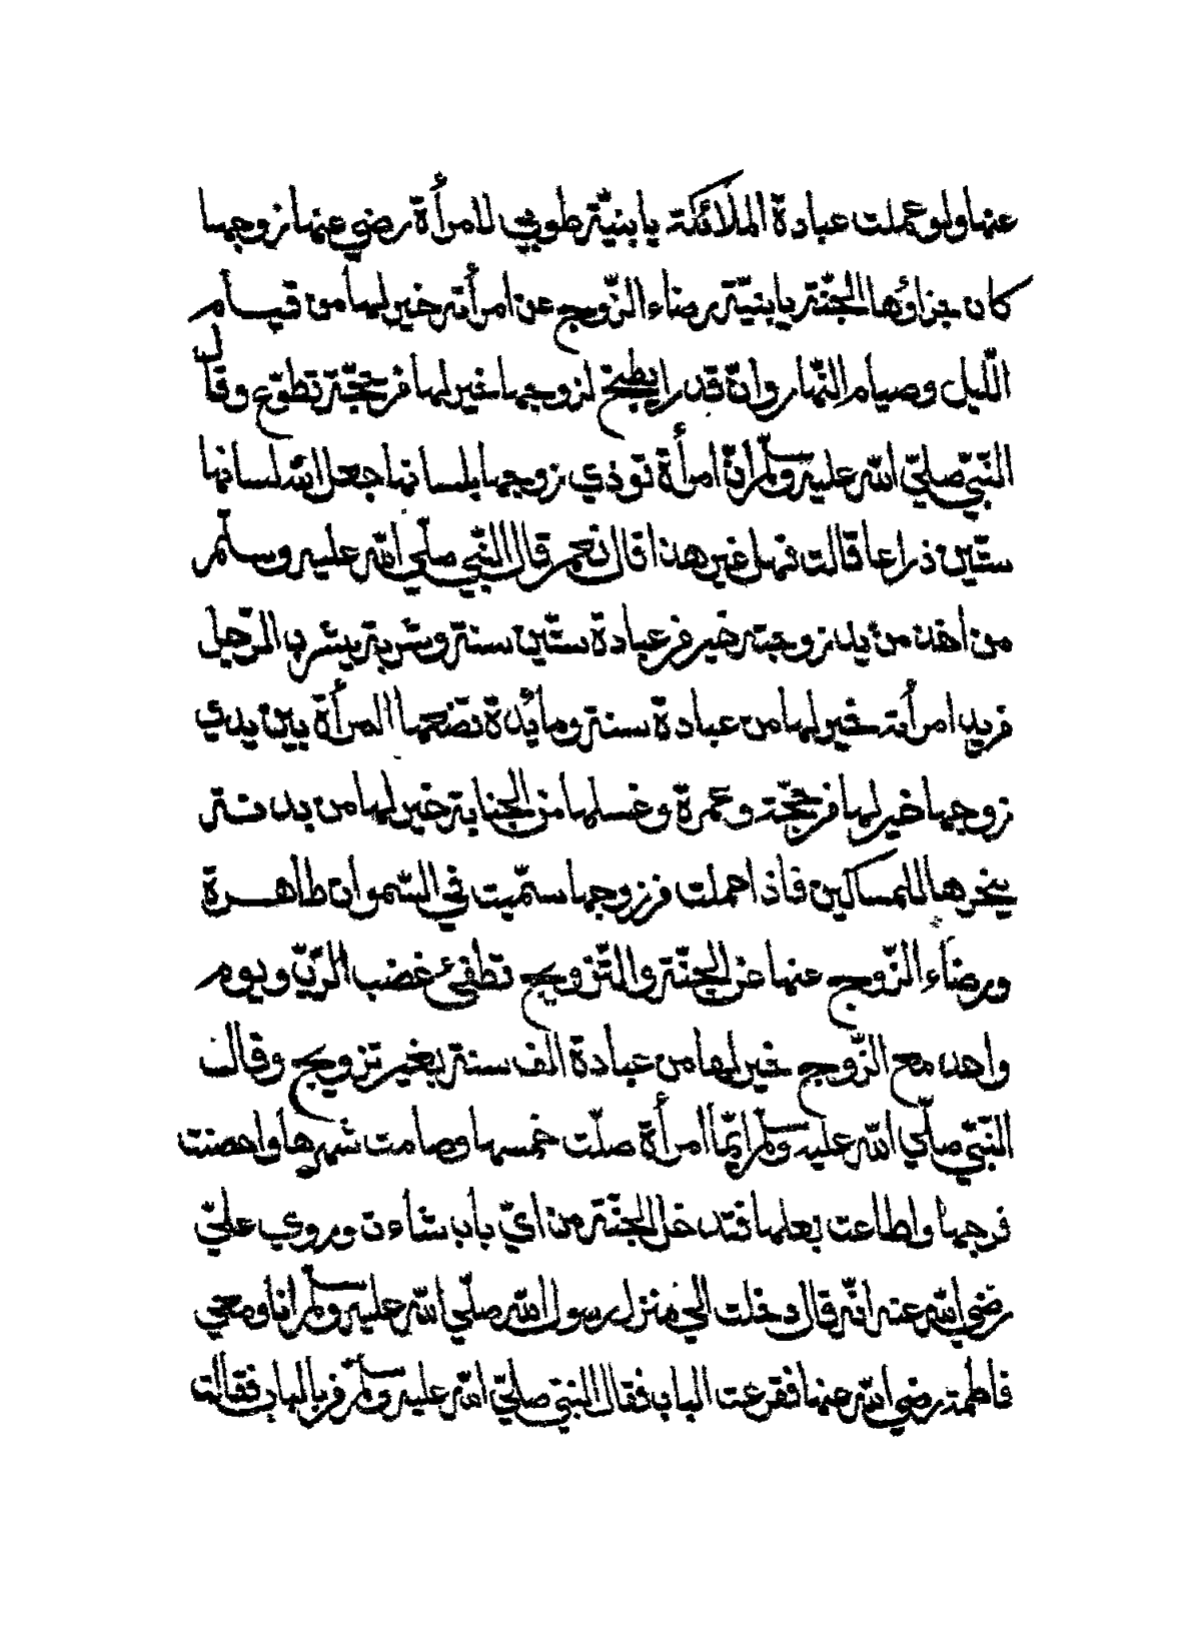 عنها ولو عملت عبادة الملائكة يا بنيّة طوبى لامرأة رضي عنها زوجها
كان جزاؤها الجنّة يا بنيّة رضاء الزّوج عن امرأته خير لها من قيام
اللّيل وصيام النّهار وانّ قدرا يطبخ لزوجها خير لها من حجّة تطوّع وقال
النّبيّ صلّي اللّه عليه وسلّم انّ امرأة توذي زوجها بلسانها جعل اللّه لسانها
ستّين ذراعا قالت فهل غير هذا قال نعم وقال النّبي صلّي اللّه عليه وسلّم
من اخذ من يد زوجته خير من عبادة ستّين سنة وشربة يشرب الرّجل
من يد امرأته خير لها من عبادة سنة ومائدة تضعها المرأة بين يدي
زوجها خير لها من حجّة وعمرة وغسلها من الجنابة خير لها من بدنة
ينحرها للمساكين فاذا حملت من زوجها سمّيت في السّموات طاهرة
ورضاء الزّوج عنها من الجنّة والتّزويج تطفئ غضب الرّبّ ويوم
واحد مع الزّوج خير لها من عبادة الف سنة بغير تزويج وقال
النّبيّ صلّي اللّه عليه وسلّم ايّما امرأة صلّت خمسها وصامت شهرها واحصنت
فرجها واطاعت بعلها فتدخل الجنّة من ايّ باب شاءت وروي عليّ
رضي اللّه عنه انّه قال دخلت الى منزل رسول اللّه صلّي اللّه عليه وسلّم انا ومعي
فاطمة رضي اللّه عنها فقرعت الباب فقال النّبيّ صلّي اللّه عليه وسلّم من بالباب فقالت